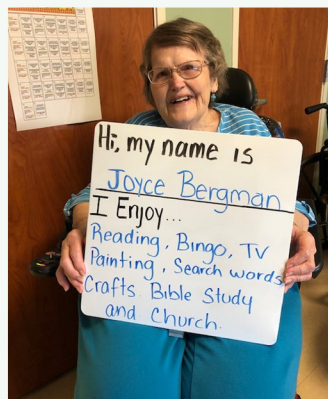 Hi, my name is
Joyce Bergman
I Enjoy...
Reading, Bingo, TV
Painting, Search words
Crafts. Bible Study
and Church.